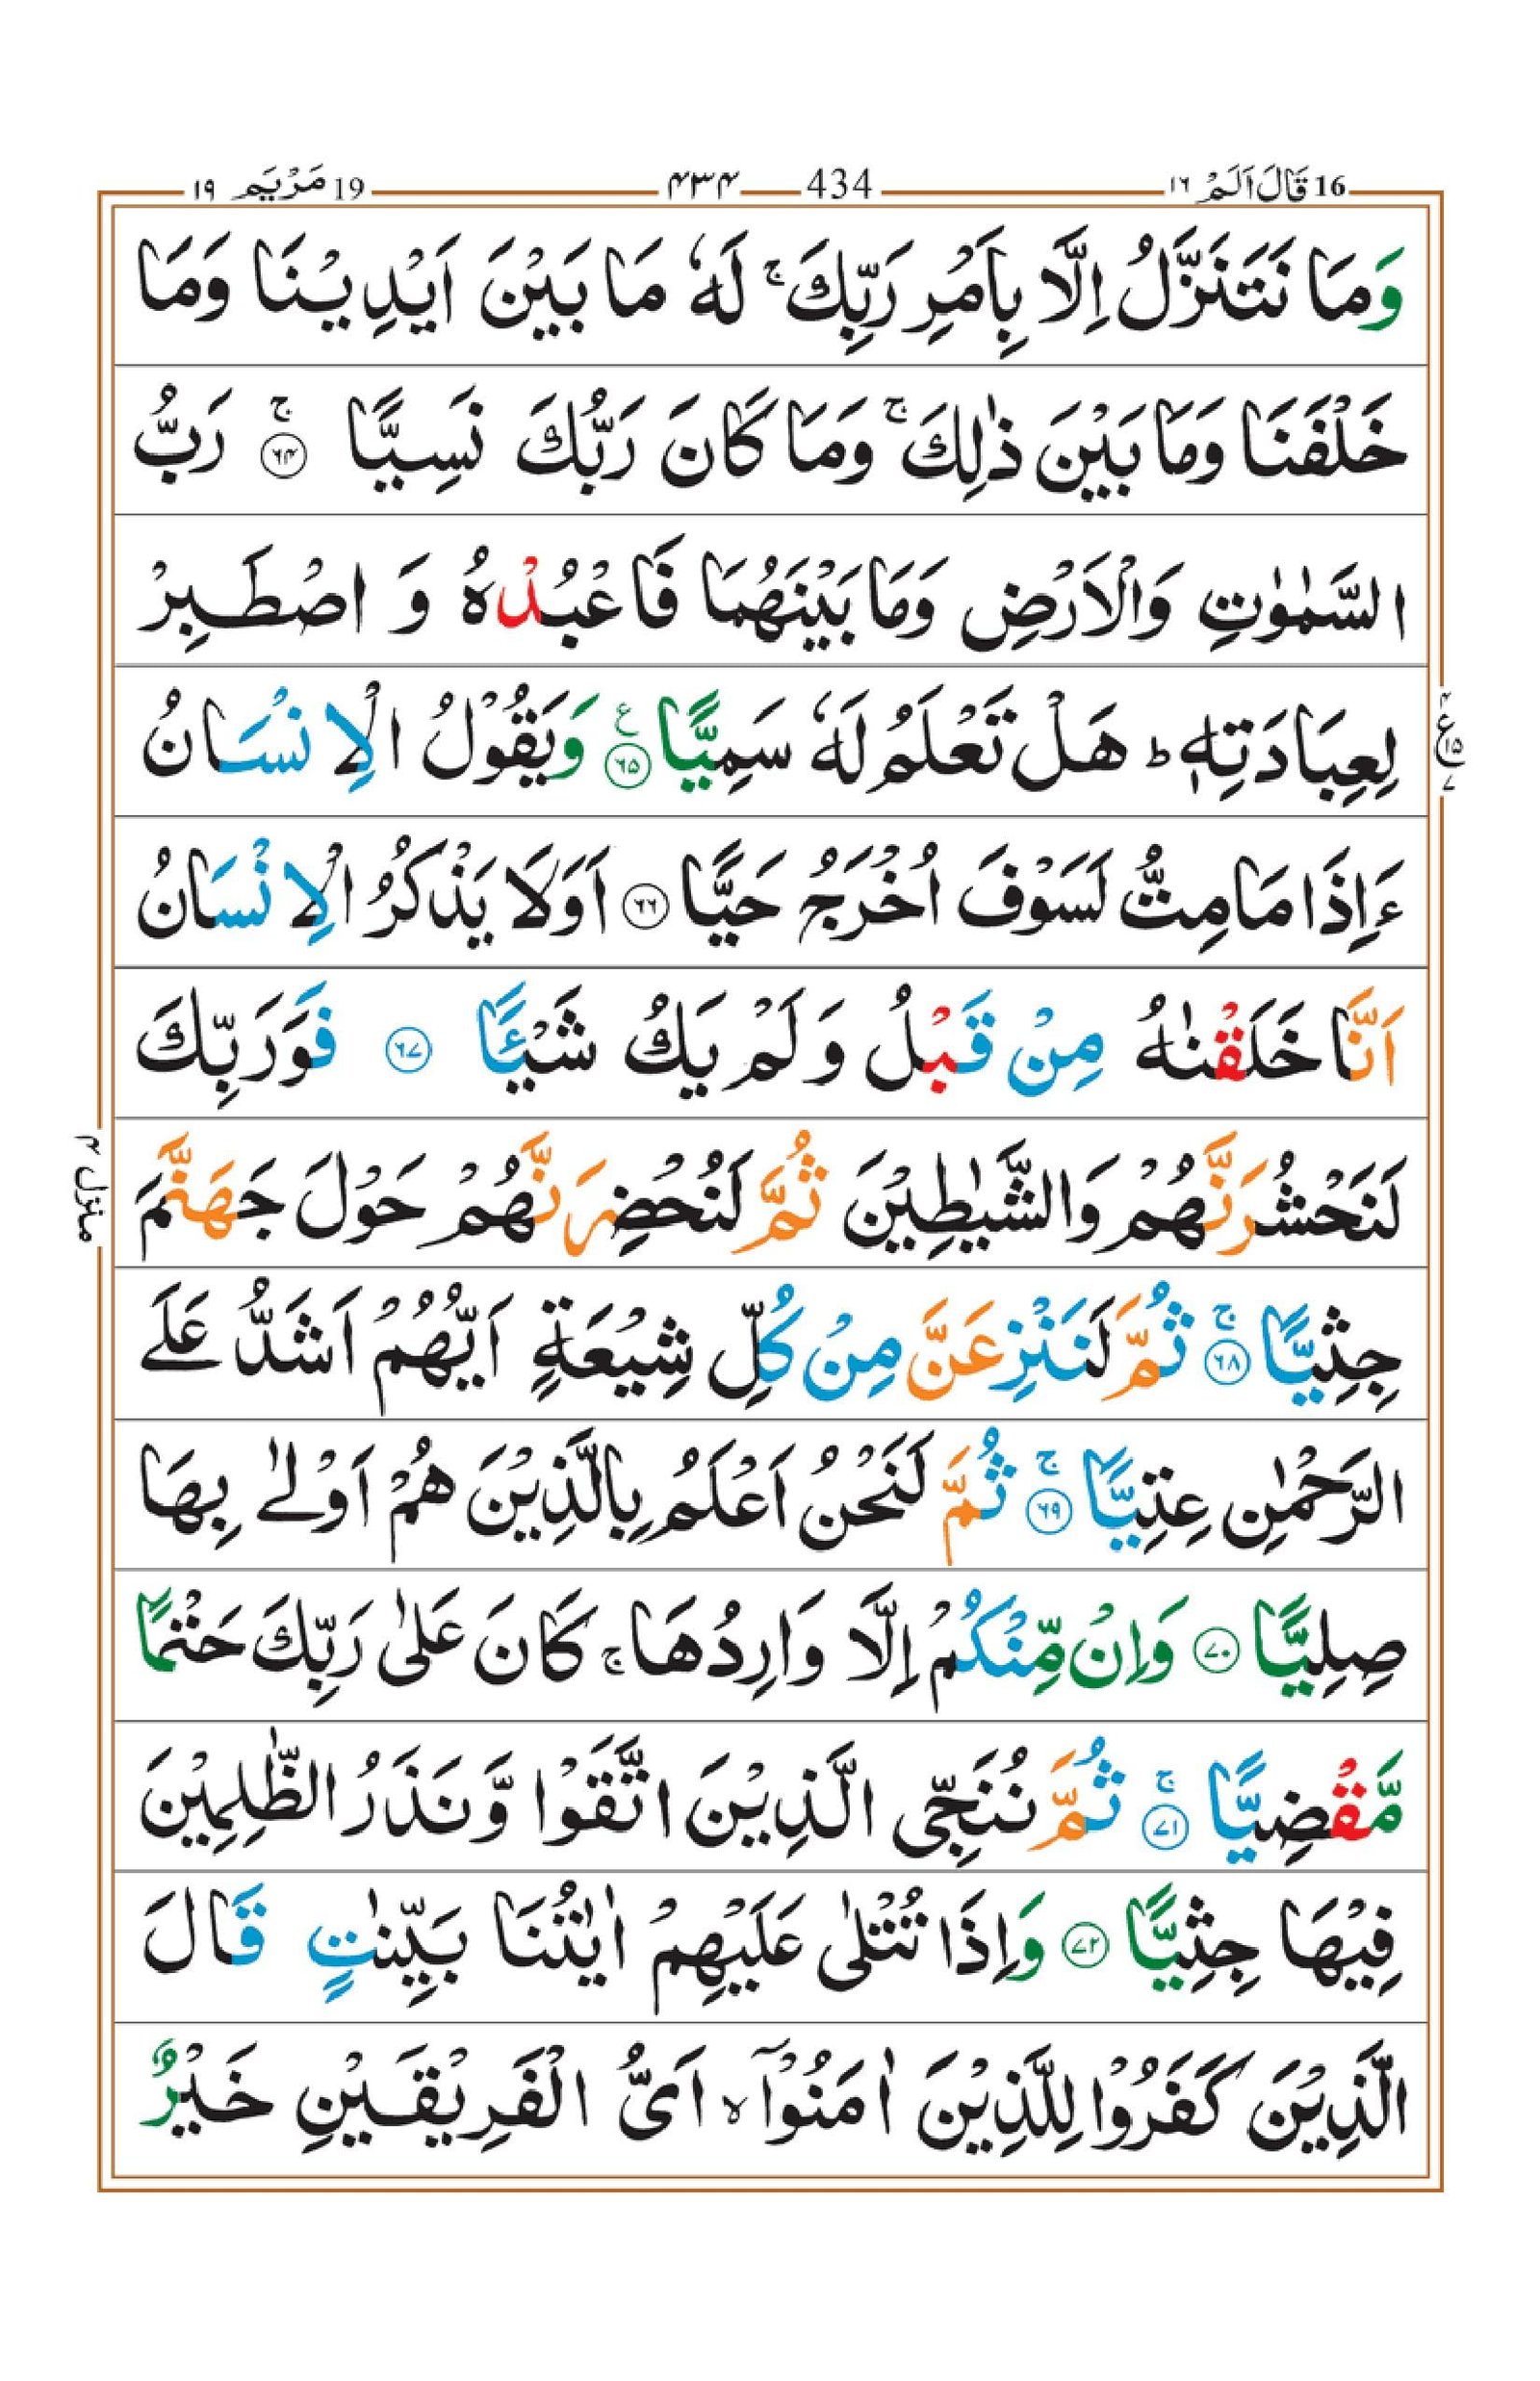 16 قَالَ اَلَمْ ١٦ 434 ۴۳۴ 19 مَرْيَم ١٩
وَمَا نَتَنَزَّلُ اِلَّا بِاَمْرِ رَبِّكَ ۚ لَهٗ مَا بَيْنَ اَيْدِيْنَا وَمَا
خَلْفَنَا وَمَا بَيْنَ ذٰلِكَ ۚ وَمَا كَانَ رَبُّكَ نَسِيًّا ۚ ۶۴ رَبُّ
السَّمٰوٰتِ وَالْاَرْضِ وَمَا بَيْنَهُمَا فَاعْبُدْهُ وَ اصْطَبِرْ
لِعِبَادَتِهٖ ؕ هَلْ تَعْلَمُ لَهٗ سَمِيًّا ع ۶۵ وَيَقُوْلُ الْاِنْسَانُ
ع ۴ ۱۵ ۷
ءَاِذَا مَا مِتُّ لَسَوْفَ اُخْرَجُ حَيًّا ۶۶ اَوَلَا يَذْكُرُ الْاِنْسَانُ
اَنَّا خَلَقْنٰهُ مِنْ قَبْلُ وَلَمْ يَكُ شَيْـًٔا ۶۷ فَوَرَبِّكَ
لَنَحْشُرَنَّهُمْ وَالشَّيٰطِيْنَ ثُمَّ لَنُحْضِرَنَّهُمْ حَوْلَ جَهَنَّمَ
منزل ۴
جِثِيًّا ۚ ۶۸ ثُمَّ لَنَنْزِعَنَّ مِنْ كُلِّ شِيْعَةٍ اَيُّهُمْ اَشَدُّ عَلَے
الرَّحْمٰنِ عِتِيًّا ۚ ۶۹ ثُمَّ لَنَحْنُ اَعْلَمُ بِالَّذِيْنَ هُمْ اَوْلٰے بِهَا
صِلِيًّا ۷۰ وَاِنْ مِّنْكُمْ اِلَّا وَارِدُهَا ۚ كَانَ عَلٰى رَبِّكَ حَتْمًا
مَّقْضِيًّا ۚ ۷۱ ثُمَّ نُنَجِّى الَّذِيْنَ اتَّقَوْا وَّنَذَرُ الظّٰلِمِيْنَ
فِيْهَا جِثِيًّا ۷۲ وَاِذَا تُتْلٰى عَلَيْهِمْ اٰيٰتُنَا بَيِّنٰتٍ قَالَ
الَّذِيْنَ كَفَرُوْا لِلَّذِيْنَ اٰمَنُوْٓا ۙ اَىُّ الْفَرِيْقَيْنِ خَيْرٌ